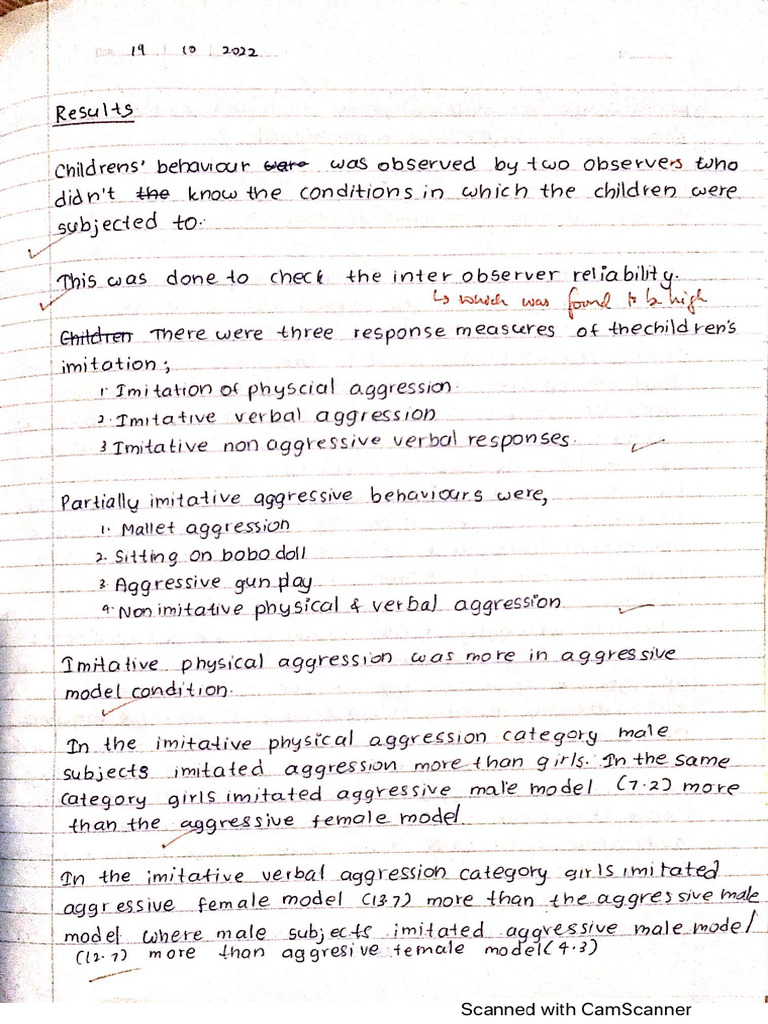 Date 19 10 2022
Results
Childrens' behaviour were was observed by two observers who
didn't the know the conditions in which the children were
subjected to.
This was done to check the inter observer reliability.
↳ which was found to be high
Children There were three response measures of the children's
imitation;
1. Imitation of physcial aggression.
2. Imitative verbal aggression
3 Imitative non aggressive verbal responses.
Partially imitative aggressive behaviours were,
1. Mallet aggression
2. Sitting on bobo doll
3. Aggressive gun play
4. Non imitative physical & verbal aggression
Imitative physical aggression was more in aggressive
model condition.
In the imitative physical aggression category male
subjects imitated aggression more than girls. In the same
category girls imitated aggressive male model (7.2) more
than the aggressive female model.
In the imitative verbal aggression category girls imitated
aggressive female model (13.7) more than the aggressive male
model where male subjects imitated aggressive male model
(12.7) more than aggresive female model (4.3)
Scanned with CamScanner